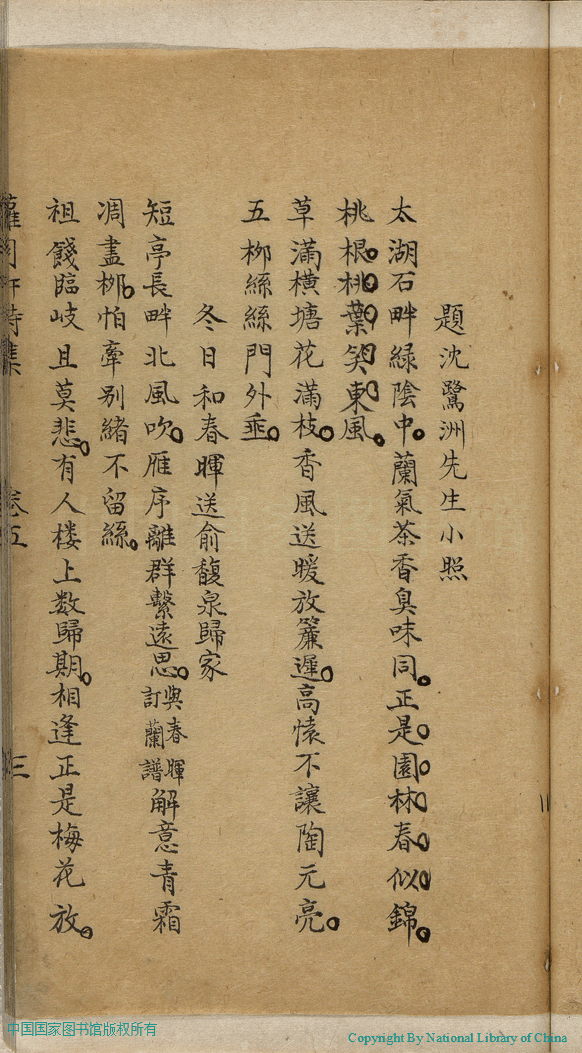 題沈鷺洲先生小照
太湖石畔綠陰中。蘭氣茶香臭味同。正是園林春似錦。
桃根桃葉笑東風。
草滿橫塘花滿枝。香風送暖放簾遲。高懷不讓陶元亮。
五柳絲絲門外垂。
冬日和春暉送俞馥泉歸家
短亭長畔北風吹。雁序離群繫遠思。與春暉訂蘭譜解意青霜
凋盡柳。怕牽別緒不留絲。
祖餞臨岐且莫悲。有人楼上数歸期。相逢正是梅花放。
卷五
三
中国国家图书馆版权所有
Copyright By National Library of China